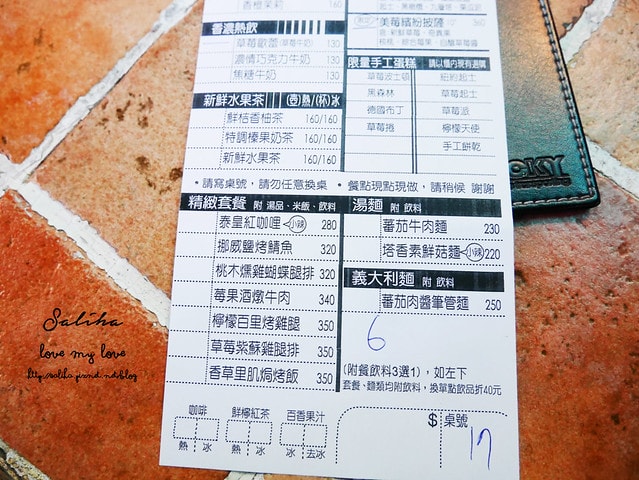 香橙果莉 160
香濃熱飲
草莓歐蕾(草莓牛奶) 130
濃情巧克力牛奶 130
焦糖牛奶 130
新鮮水果茶 (壺)熱/(杯)冰
鮮桔香柚茶 160/160
特調榛果奶茶 160/160
新鮮水果茶 160/160
美莓繽紛披薩 360
限量手工蛋糕 請以櫃內現有選購
草莓波士頓 紐約起士
黑森林 草莓起士
德國布丁 草莓派
草莓捲 檸檬天使
手工餅乾
•請寫桌號，請勿任意換桌 •餐點現點現做，請稍候 謝謝
精緻套餐 附 湯品、米飯、飲料
泰皇紅咖哩 小辣 280
挪威鹽烤鯖魚 320
桃木燻雞蝴蝶腿排 320
莓果酒燉牛肉 340
檸檬百里烤雞腿 350
草莓紫酥雞腿排 350
香草里肌焗烤飯 350
湯麵 附 飲料
蕃茄牛肉麵 230
塔香素鮮菇麵 小辣 220
義大利麵 附 飲料
蕃茄肉醬筆管麵 250
6
(附餐飲料3選1)，如左下
套餐、麵類均附飲料，換單點飲品折40元
咖啡 鮮檸紅茶 百香果汁
熱 冰 熱 冰 冰 去冰
$ 桌號
17
CKY
Saliha
love my love
http://saliha.pixnet.net/blog